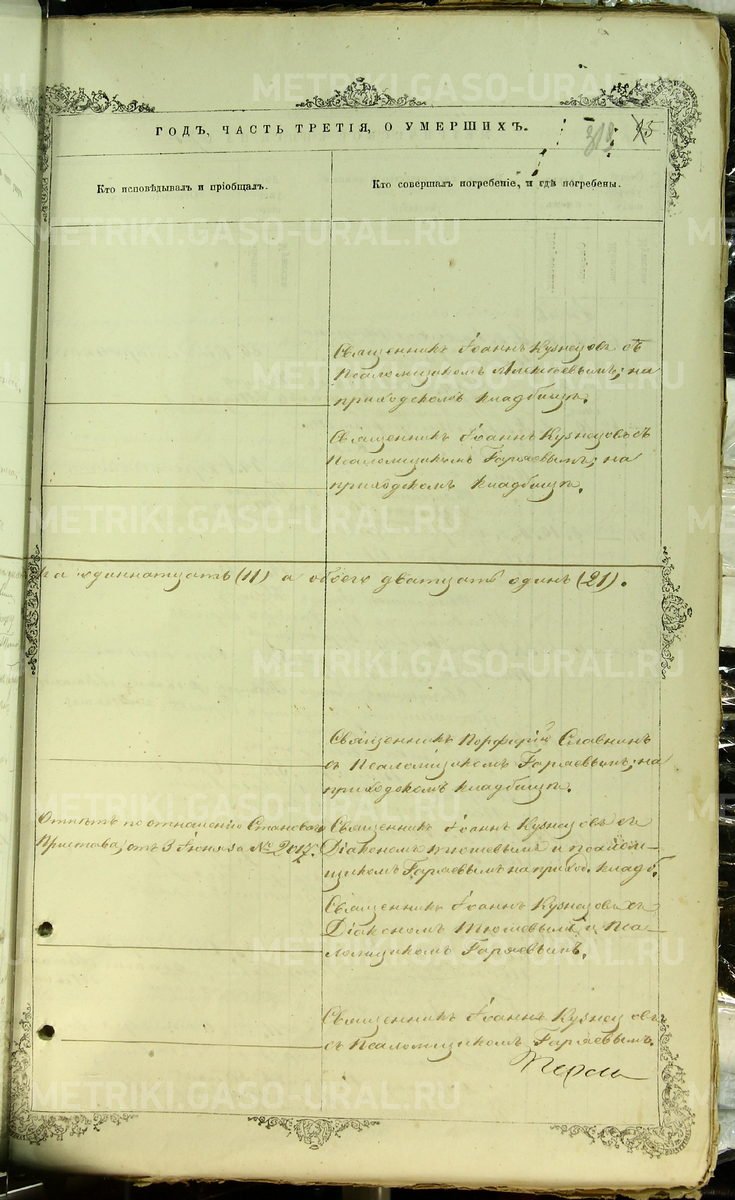 ГОДЪ, ЧАСТЬ ТРЕТІЯ, О УМЕРШИХЪ.
Кто исповѣдывалъ и пріобщалъ.
Кто совершалъ погребеніе, и гдѣ погребены.
Священникъ Іоаннъ Кузнецовъ съ
Псаломщикомъ Алексѣевымъ; на
приходскомъ кладбищѣ.
Священникъ Іоаннъ Кузнецовъ съ
Псаломщикомъ Гаряевымъ; на
приходскомъ кладбищѣ.
одиннатцать (11) а обоего дватцать одинъ (21).
Священникъ Порфирій Славнинъ
съ Псаломщикомъ Гаряевымъ; на
приходскомъ кладбищѣ.
Отпѣтъ по отношенію Становаго
Пристава, отъ 3 Іюня за № 2015.
Священникъ Іоаннъ Кузнецовъ съ
Діакономъ Тюшевымъ и псалом-
щикомъ Гаряевымъ на приход. кладб.
Священникъ Іоаннъ Кузнецовъ съ
Діакономъ Тюшевымъ и Пса-
ломщикомъ Гаряевымъ.
Священникъ Іоаннъ Кузнецовъ
съ Псаломщикомъ Гаряевымъ.
METRIKI.GASO-URAL.RU